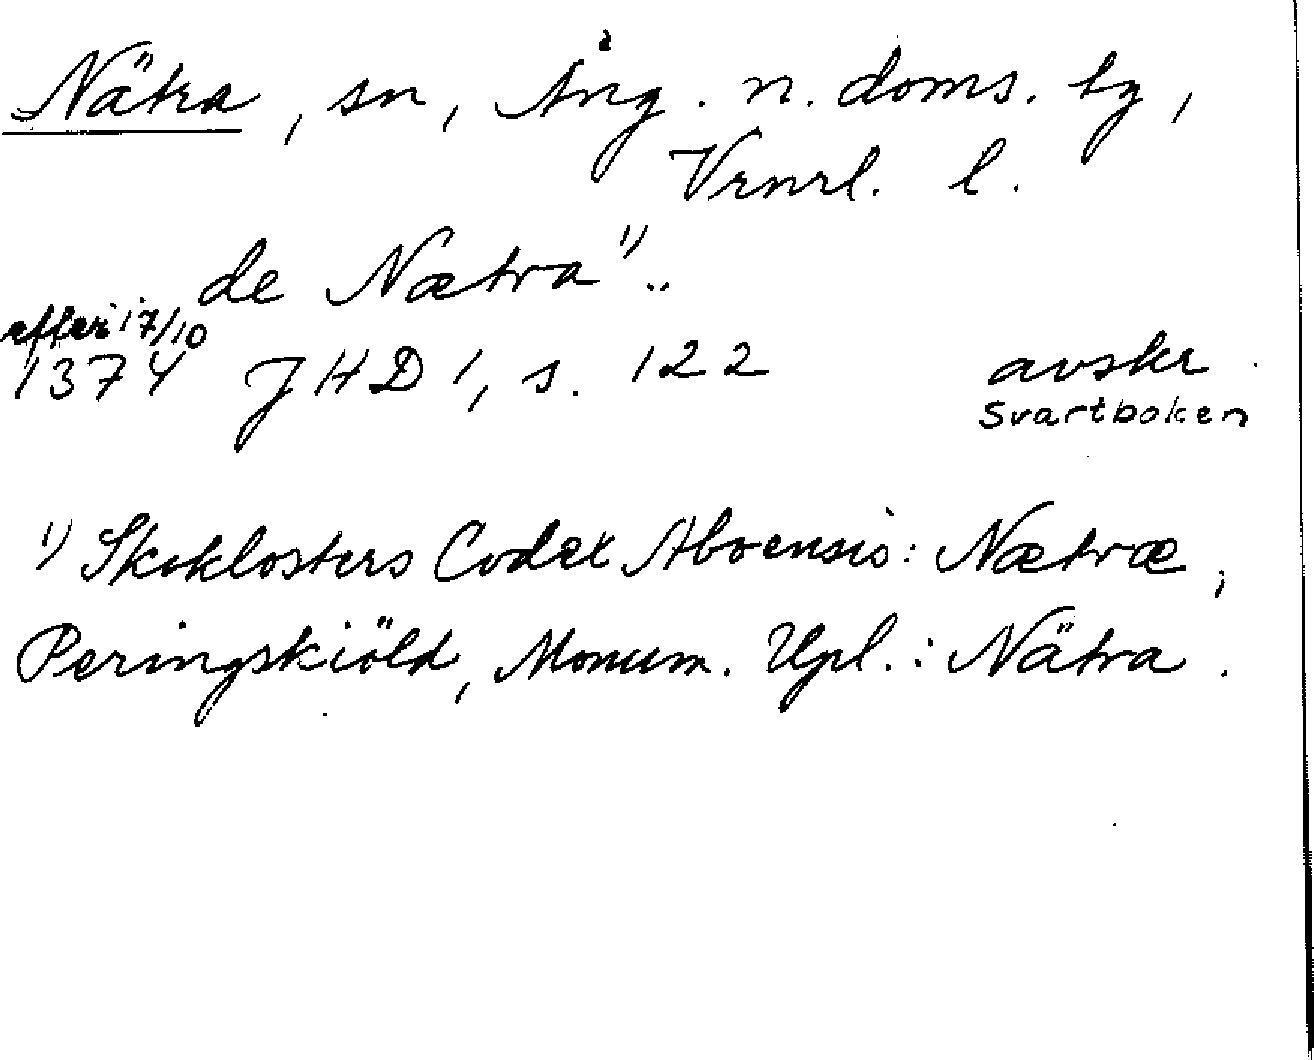 Nätra, sn, Ång. n. doms. tg,
Vrnrl. l.
de Nætra 1) ..
efter 17/10
1374 JHD 1, s. 122 avskr.
Svartboken
1) Skoklosters Codex Aboensis: Nætræ,
Peringskiöld, Monum. Upl.: Nätra.